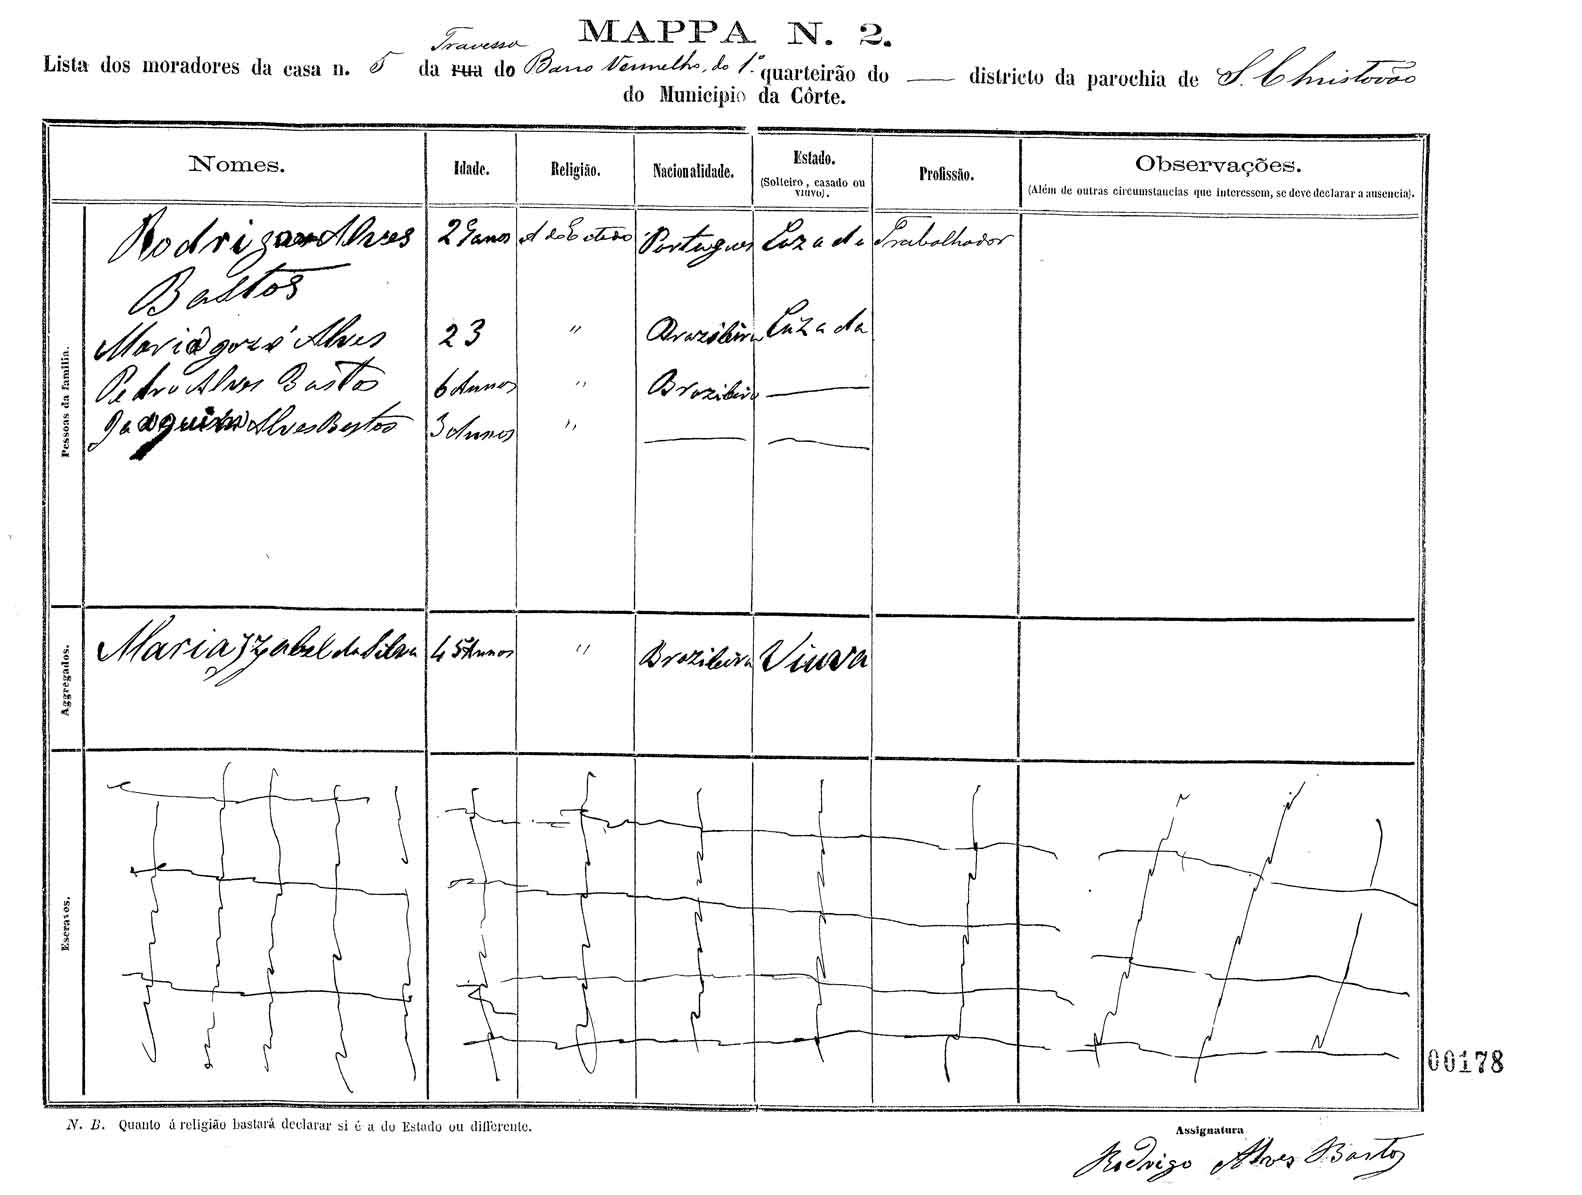 MAPPA N. 2.
Travessa
Lista dos moradores da casa n. 5 da rua do Barro Vermelho, do 1.º quarteirão do — districto da parochia de S. Christovão
do Municipio da Côrte.
Nomes. Idade. Religião. Nacionalidade. Estado. (Solteiro, casado ou viuvo). Profissão. Observações. (Além de outras circumstancias que interessem, se deve declarar a ausencia).
Pessoas da familia.
Alves 29 anos A do Estado Portugues Cazada Trabalhador
Bastos
Maria Alves 23 " Brazileira Cazada
Pedro Alves Bastos 6 Annos " Brazileiro —
Joaquim Alves Bastos 3 Annos " — —
Aggregados.
Maria Izabel da Silva 45 Annos " Brazileira Viuva
Escravos.
00178
N. B. Quanto á religião bastará declarar si é a do Estado ou differente.
Assignatura
Rodrigo Alves Bastos